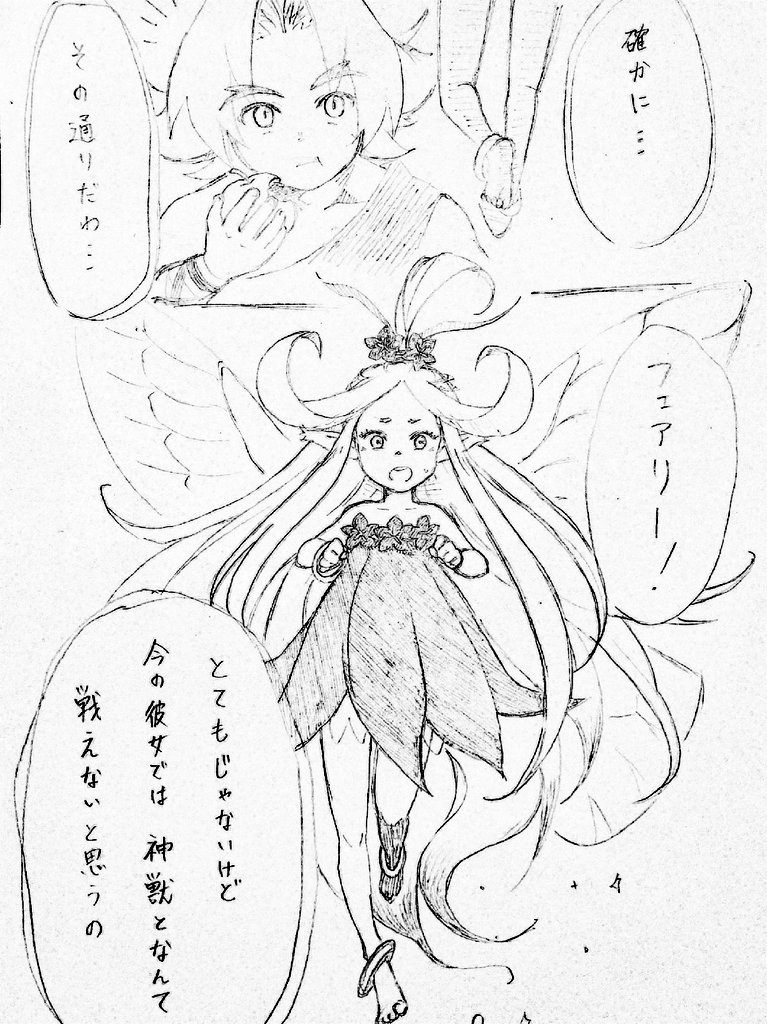 確かに…
その通りだわ…
フェアリー！
とてもじゃないけど
今の彼女では 神獣となんて
戦えないと思うの